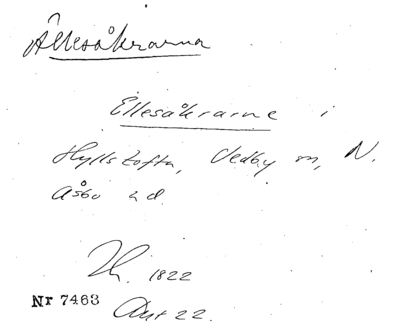 Ällesåkrarna
Ellesåkrarne i
Hyllstofta, Vedby sn, N.
Åsbo hd.
Th. 1822
Nr 7463 Akt 22.